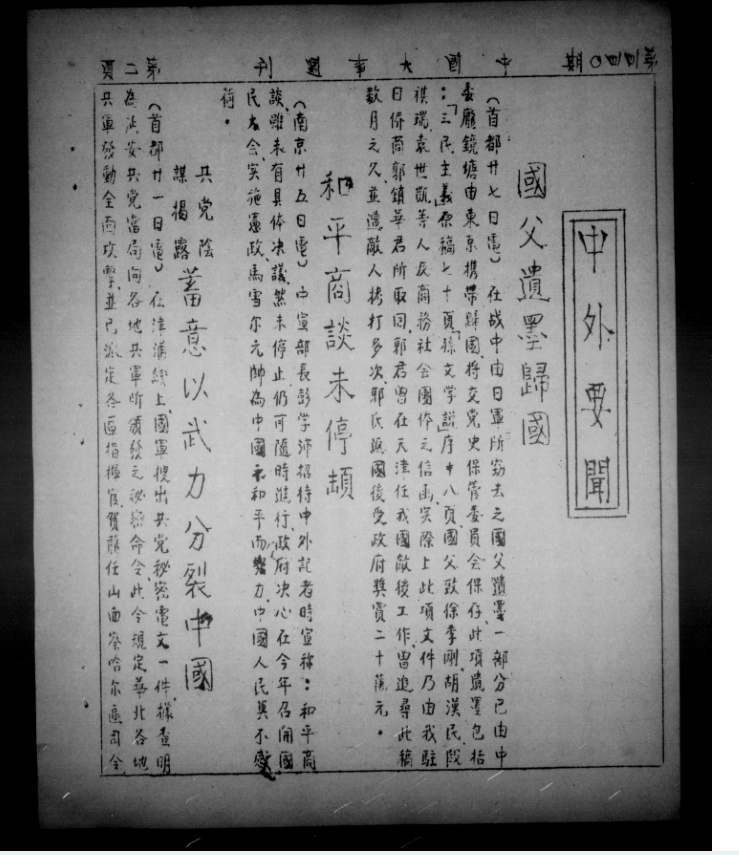 第四四〇期
中國大事週刊
第二頁
中外要聞
國父遺墨歸國
（首都廿七日電）在战中由日軍所窃去之國父遺墨一部分已由中
委羅鏡塘由東京携帶歸國，将交党史保管委員会保存，此項遺墨包括
：「三民主義」原稿七十頁，「孫文学說」序中八頁，國父致徐季剛、胡漢民、段
祺瑞、袁世凱等人及商務社会團体之信函，实際上此項文件乃由我駐
日侨商郭鎮華君所取回，郭君曾在天津任我國敵後工作，曾追尋此稿
数月之久，並遭敵人拷打多次，郭氏返國後受政府獎賞二十萬元。
和平商談未停頓
（南京廿五日電）中宣部長彭学沛招待中外記者時宣称：和平商
談，雖未有具体决議，然未停止，仍可隨時進行，政府决心在今年召開國
民大会，实施憲政，馬雪尔元帥為中國之和平而努力，中國人民莫不感
荷。
共党陰
謀揭露
蓄意以武力分裂中國
（首都廿一日電）在津浦綫上，國軍搜出共党秘密電文一件，據查明
為延安共党當局向各地共軍所頒發之秘密命令，此令規定華北各地
共軍發動全面攻擊，並已派定各區指揮官，賀龍任山西察哈尔區司令